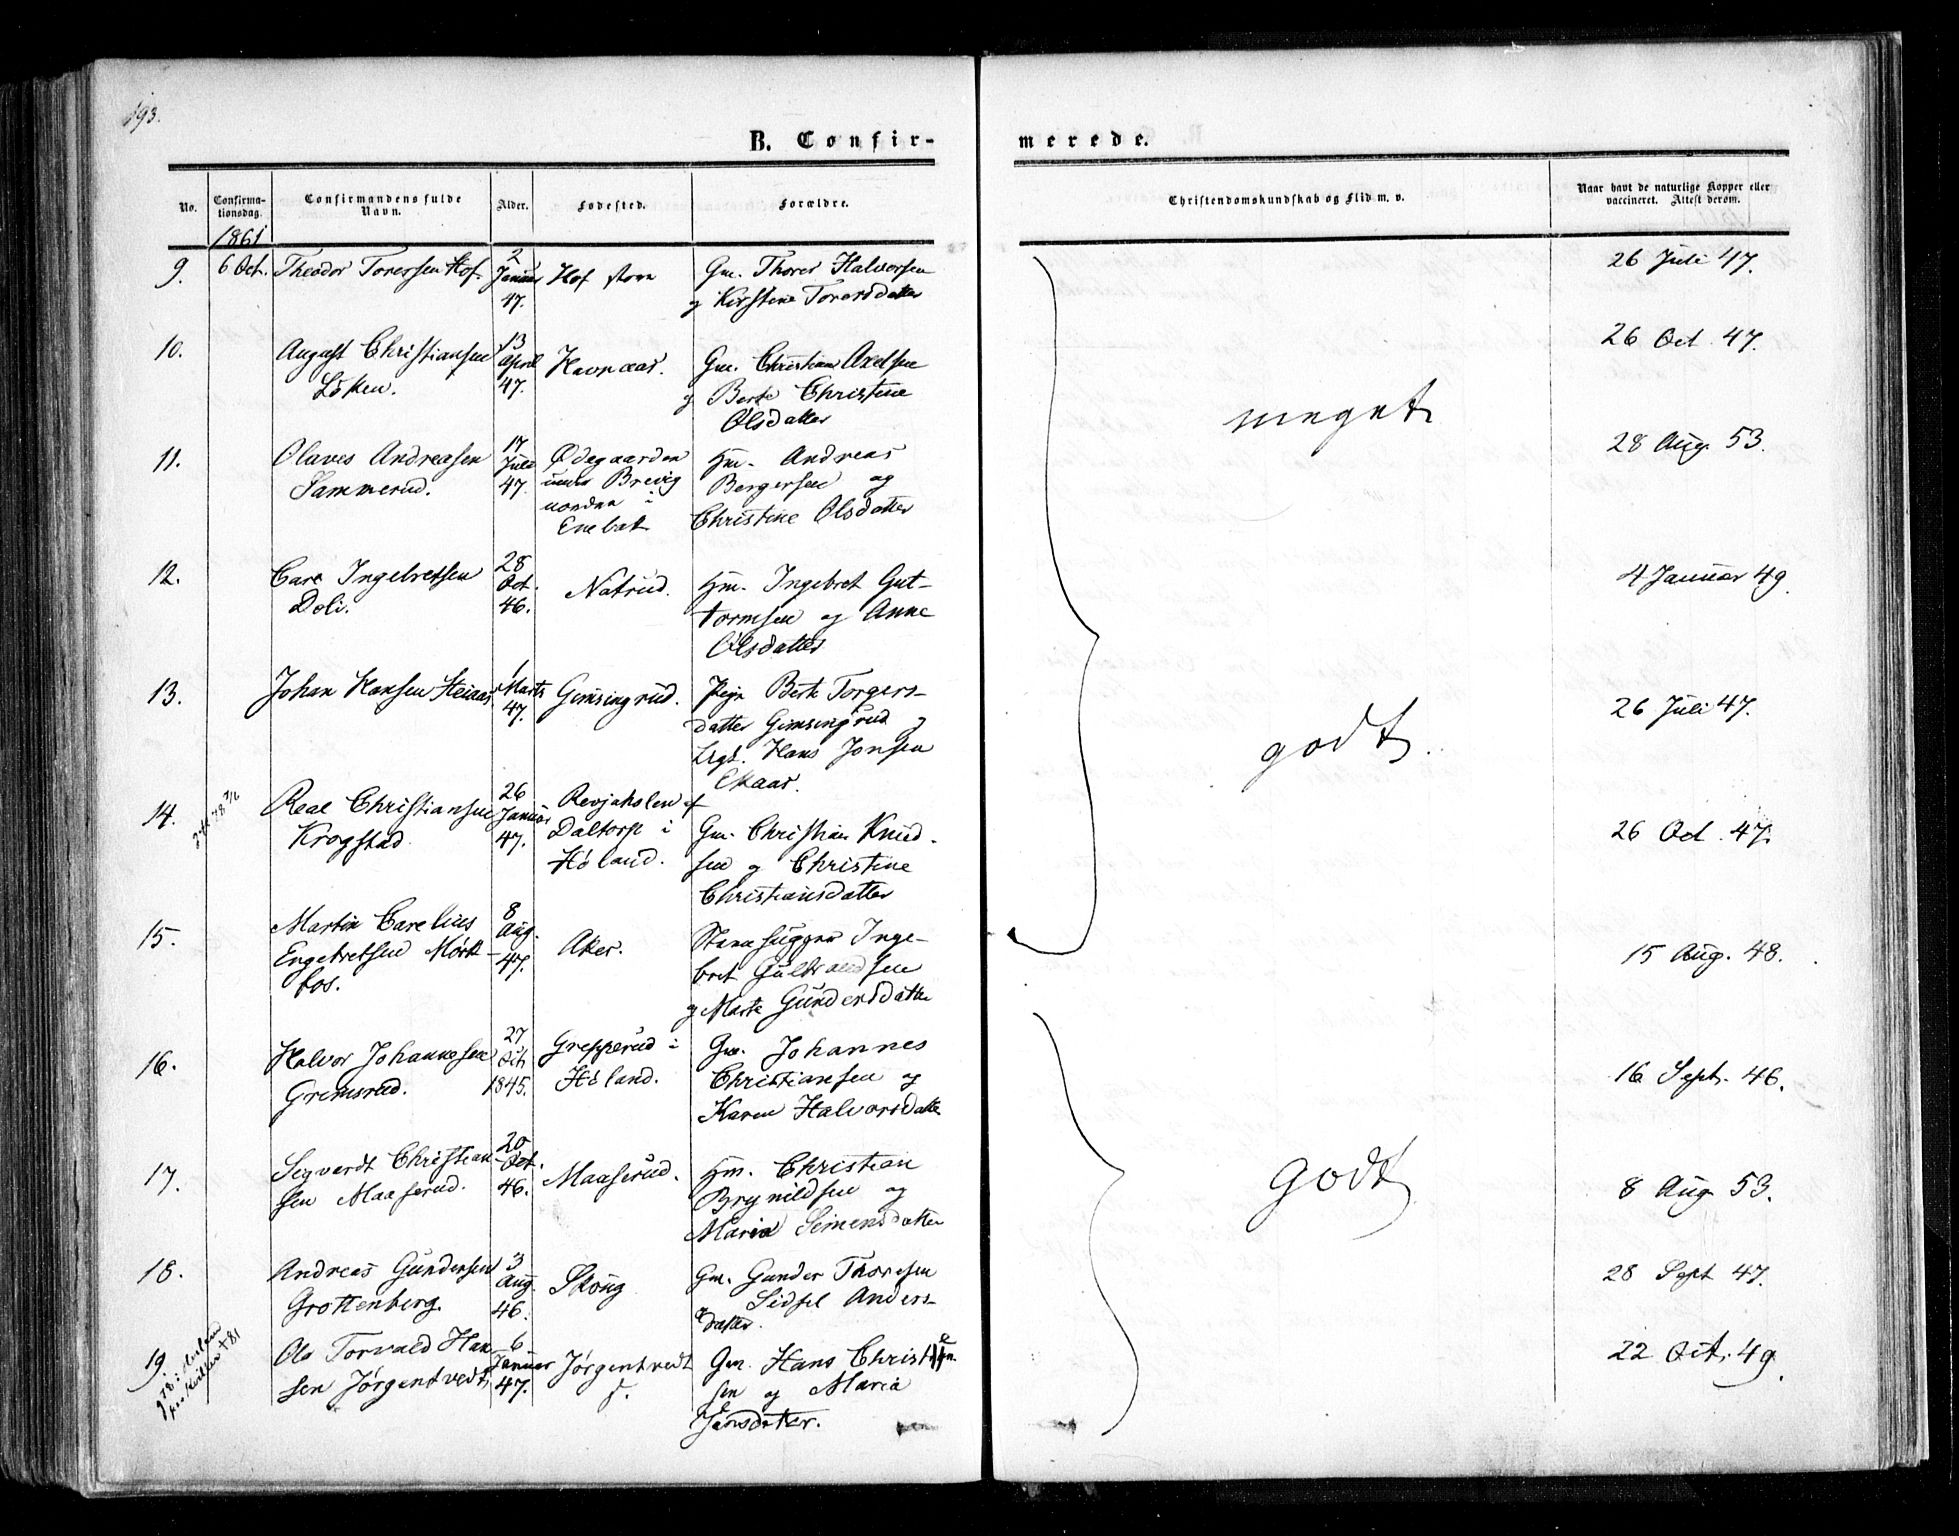 193.
B. Confir-
merede.
No.
Confirma-
tionsdag.
Confirmandens fulde
Navn.
Alder.
Fødested.
Forældre.
Christendomskundskab og Flid m. v.
Naar havt de naturlige Kopper eller
vaccineret. Attest derom.
1861
9. 6 Oct. Theodor Torersen Hof. 2 Januar 47. Hof store Gm. Thorer Halvorsen
og Kirstine Torersdatter
26 Juli 47.
10. August Christiansen 13 April 47. Havnaas. Gm. Christian Axelsen
Löken. og Berte Christine
Olsdatter
26 Oct. 47.
meget
11. Olaves Andreasen 17 Juli 47. Ødegaarden Hm. Andreas
Sammerud. under Brevig Bergersen og
nordre i Christine Olsdatter
Enebak
28 Aug. 53.
12. Carl Ingebretsen 28 Oct. 46. Natrud. Hm. Ingebret Gut-
Doli. tormsen og Anne
Olsdatter
4 Januar 49.
13. Johan Hansen 1 Marts 47. Gimsingrud. Pige Berte Torgers-
datter Gimsingrud og
Ungk. Hans Jonsen
26 Juli 47.
godt.
14. Real Christiansen 26 Januar 47. af
Krogstad. Daltorp i Gm. Christian Knud-
Höland. sen og Christine
Christiansdatter
26 Oct. 47.
15. Martin Carelius 8 Aug. 47. Aker. Inge-
Engebretsen Mørk- bret Gulbrandsen
fos. og Marte Gundersdatter
15 Aug. 48.
16. Halvor Johannesen 27 Oct. 1845. Grepperud i Gm. Johannes
Grimsrud. Höland. Christiansen og
Karen Halvorsdatter
16 Sept. 46.
17. Sigvardt Christian- 20 Oct. 46. Maaserud. Hm. Christian
sen Maaserud. Brynildsen og
Maria Simensdatter
8 Aug. 53.
godt
18. Andreas Gundersen 3 Aug. 46. Skoug Gm. Gunder Thoresen
Grottenberg. og Sidsel Anders-
datter.
28 Sept 47.
19. Ole Torvald Han- 6 Januar 47. Jörgentvedt Gm. Hans Christian-
sen Jörgentvedt s. sen og Maria
Jensdatter.
22 Oct. 49.